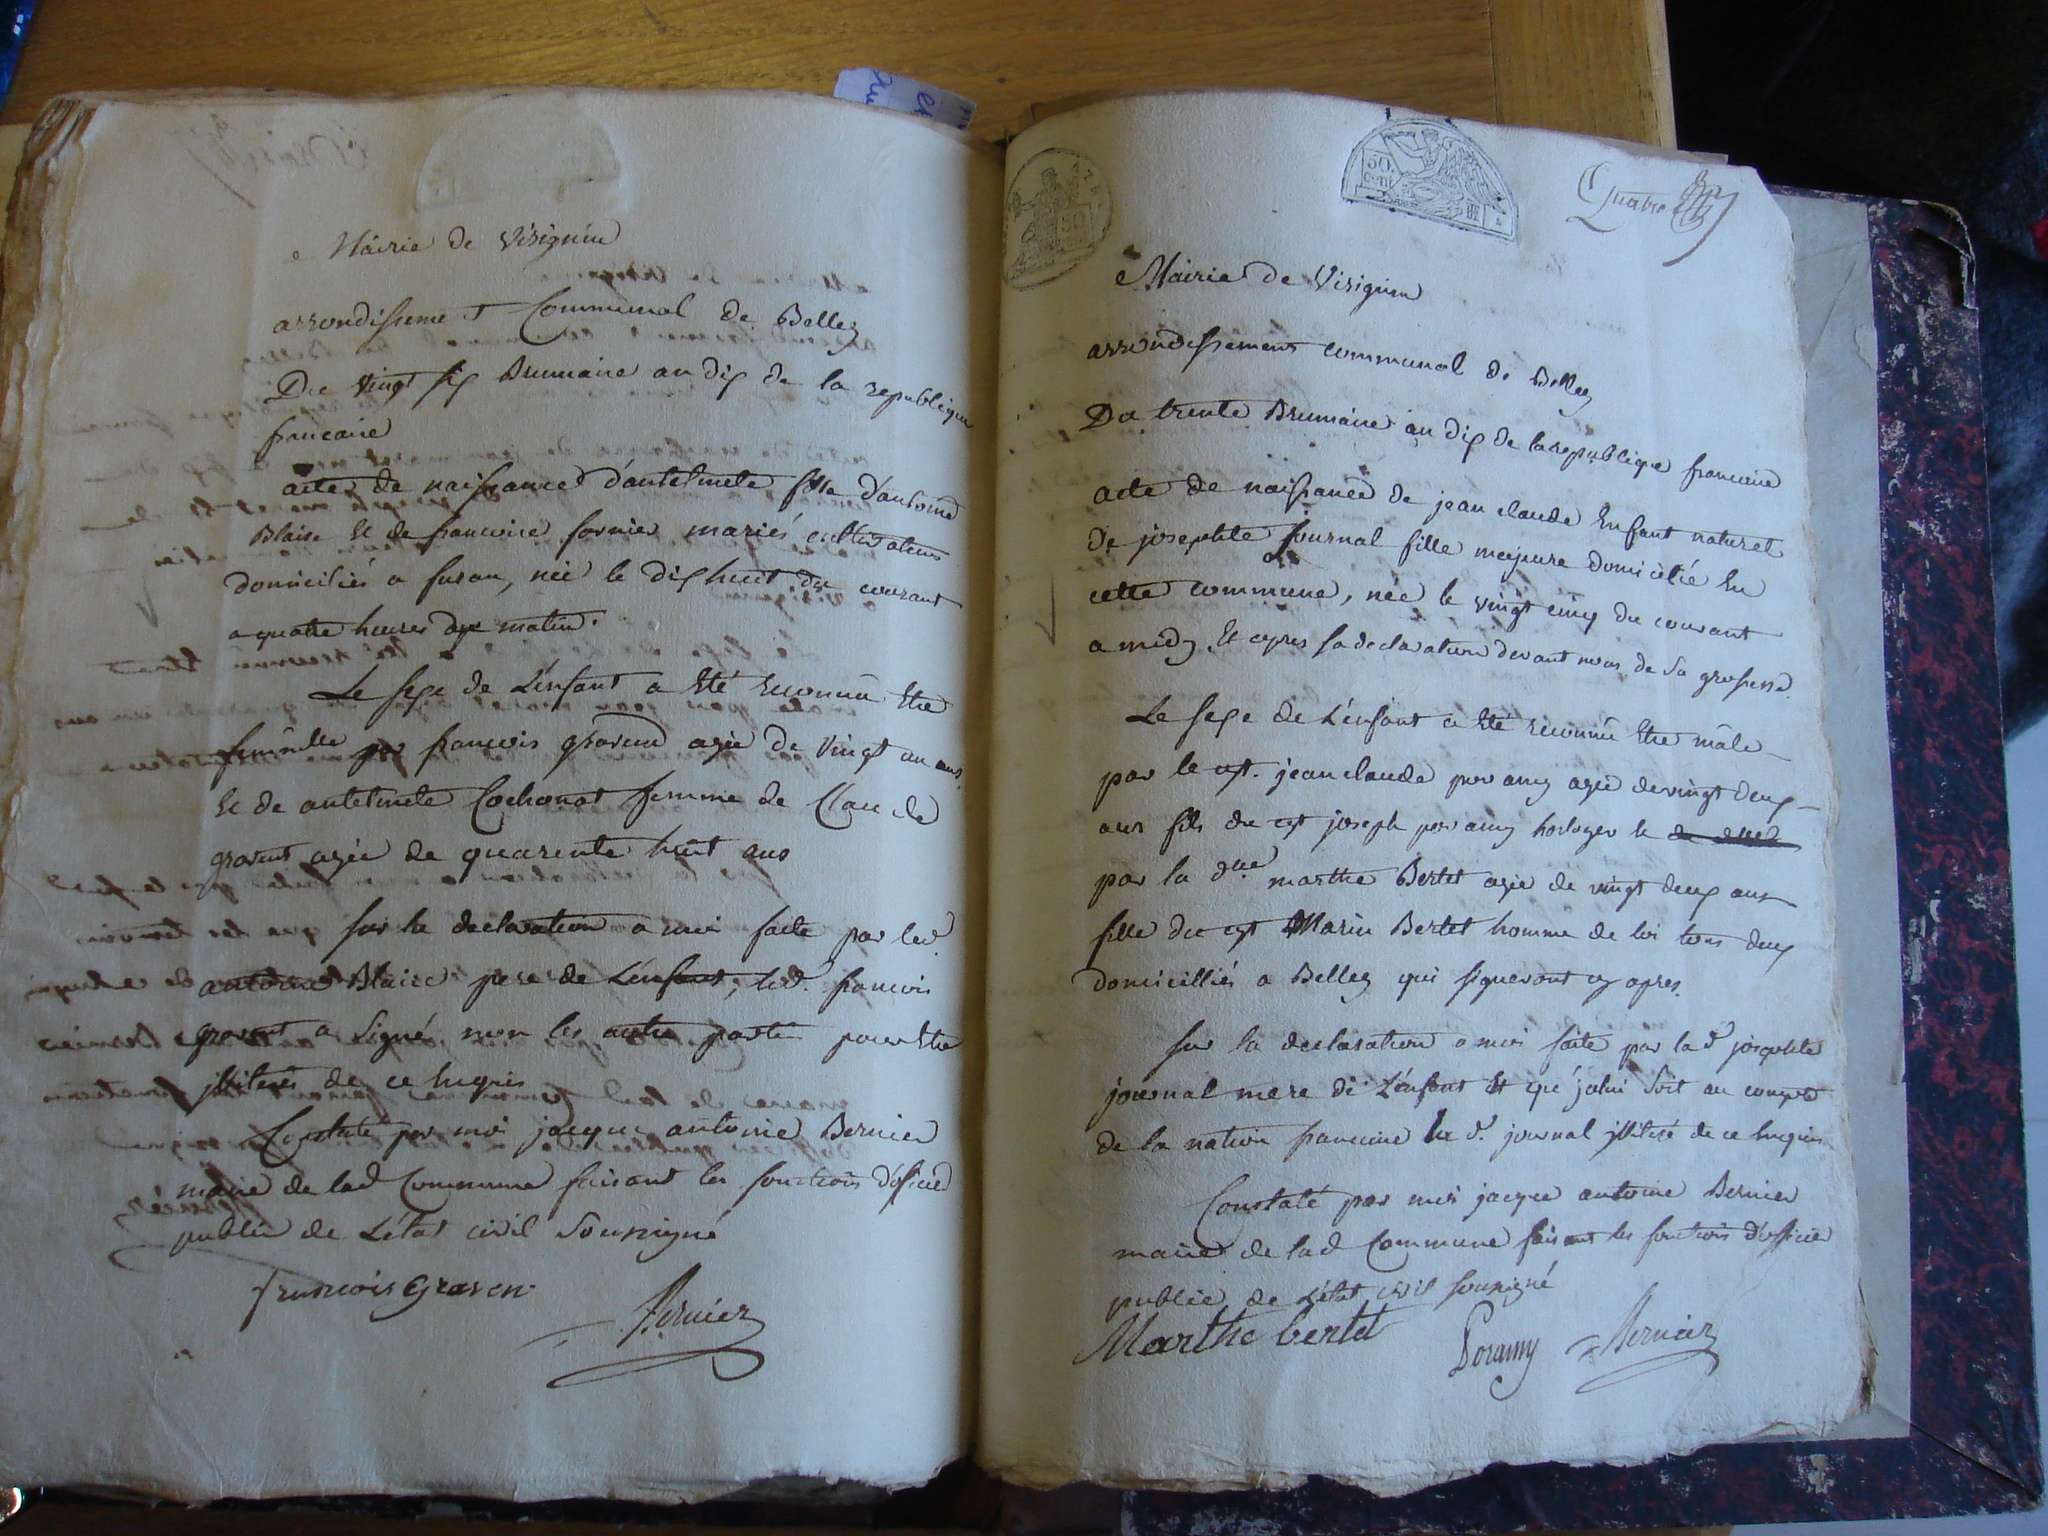 Mairie de Virignin
arrondissement Communal de Belley
Du vingt six Brumaire an dix de la republique
francaise
acte de naissance d'antelmete fille d'antoine
Blaise et de francoise fornier mariés cultivateurs
domiciliés a suran, née le dix huit du courant
a quatre heures du matin.
Le sexe de L'enfant a été reconnu etre
femmelle par francois gravend agée de vingt un ans
et de antelmete Cochonat femme de Claude
gravent agée de quarente huit ans
sur la declaration a moi faite par led.
antoine Blaise pere de L'enfant, led. francois
gravent a signé non les autre partie pour etre
illiterés de ce enquis
Constaté par moi jacque antoine Bernier
maire de lad Commune faisant les fonctions d'officier
public de L'état civil soussigné
francois Graven
Bernier
50. cent.
50
Quatre
Mairie de Virignin
arrondissement communal de Belley
Du trente Brumaire an dix de la republique francaise
acte de naissance de jean claude enfant naturel
de josephte journal fille majeure domicilié en
cette commune, née le vingt cinq du courant
a midy et apres sa declaration devant nous de sa grossesse.
Le sexe de L'enfant a été reconnu etre mâle
par le cyt. jean claude poramy agée de vingt deux
ans fils du cyt joseph poramy horloger et
par la dlle marthe Bertet agée de vingt deux ans
fille du cyt Marin Bertet homme de loi tous deux
domicilliés a Belley qui signeront cy apres.
sur la declaration a moi faite par la d. josephte
journal mere de L'enfant et qu'jcelui soit au compte
de la nation francaise la d. journal illitéré de ce enquis
Constaté par moi jacque antoine Bernier
maire de lad Commune faisant les fonctions d'officier
public de L'état civil soussigné
Marthe bertet
Poramy
Bernier